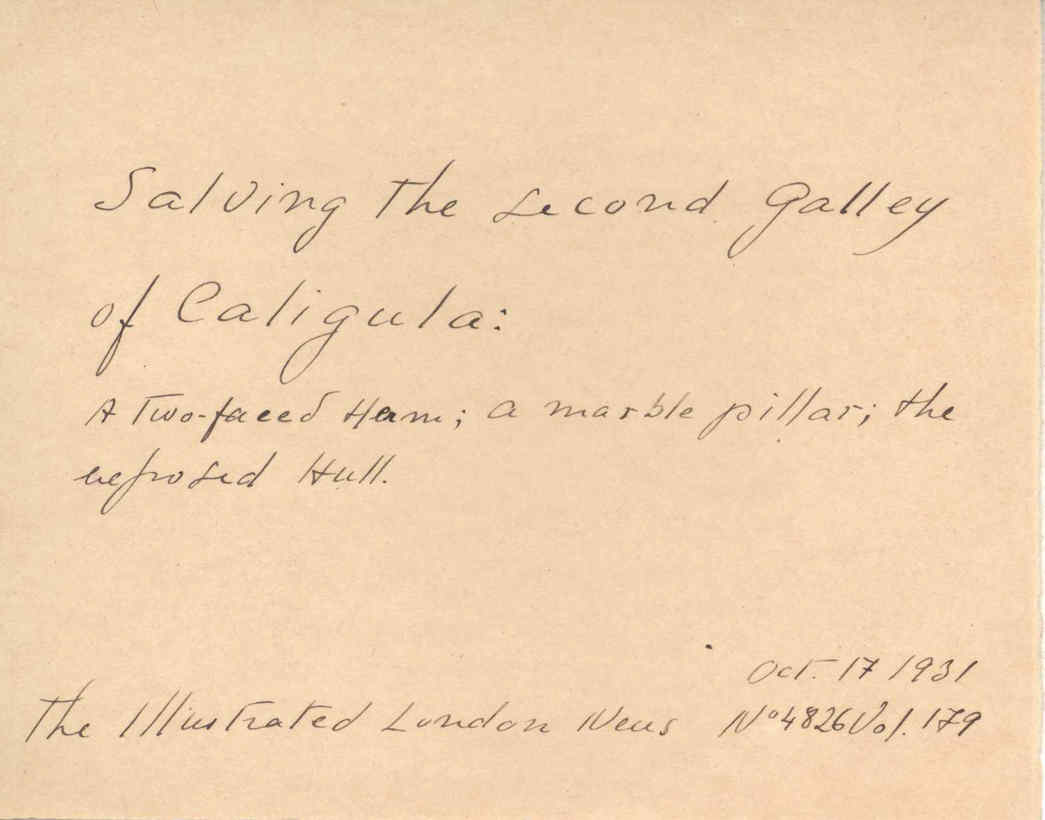 Salving the second Galley
of Caligula:
A Two-faced Herm; a marble pillar; the
exposed Hull.
Oct. 17 1931
The Illustrated London News Nº 4826 Vol. 179